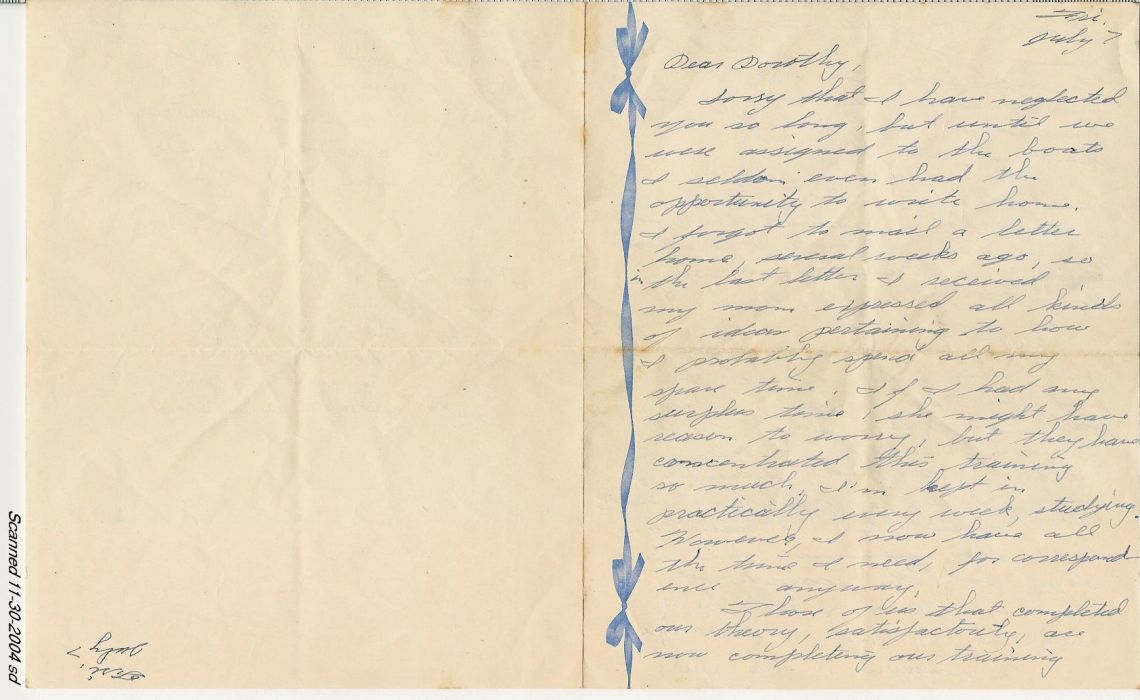 Fri.
July 7
Dear Dorothy,
Sorry that I have neglected
you so long, but until we
were assigned to the boats
I seldom even had the
opportunity to write home.
I forgot to mail a letter
home, several weeks ago, so
in the last letter I received
my mom expressed all kinds
of ideas pertaining to how
I probably spend all my
spare time. If I had any
surplus time, she might have
reason to worry, but they have
concentrated this training
so much, I'm kept in
practically every week, studying.
However, I now have all
the time I need, for correspond
ence anyway.
Those of us that completed
our theory, satisfactorily, are
now completing our training
Fri.
July 7
Scanned 11-30-2004 sd